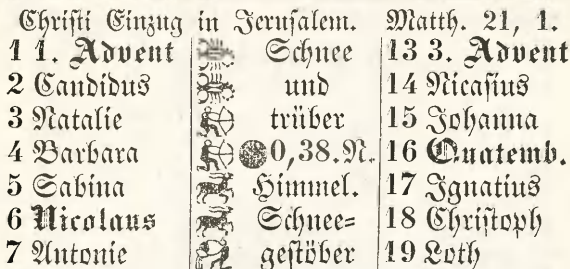 Christi Einzug in Jerusalem. Matth. 21, 1.
1 1. Advent Schnee 13 3. Advent
2 Candidus und 14 Nicasius
3 Natalie trüber 15 Johanna
4 Barbara 0,38.N. 16 Quatemb.
5 Sabina Himmel. 17 Ignatius
6 Nicolaus Schnee= 18 Christoph
7 Antonie gestöber 19 Loth